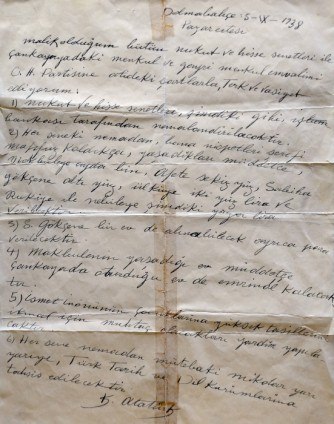 Dolmabahçe: 5-IX-1938
Pazartesi
malik olduğum bütün nukut ve hisse senetleri ile
Çankayadaki menkul ve gayri menkul emvalimi
C. H. Partisine atideki şartlarla terk ve vasiyet
ediyorum:
1) nukut ve hisse senetleri, şimdiki gibi, iş
bankası tarafından nemalandırılacaktır.
2) Her seneki nemadan, bana nispetleri şerefi
mahfuz kaldıkça, yaşadıkları müddetçe,
Makbuleye ayda bin, Afete sekiz yüz, Sabiha
gökçene altı yüz, ülküye iki yüz lira ve
Rukiye ile nebileye şimdiki yüzer lira
verilecektir.
3) S. Gökçene bir ev de alınabilecek ayrıca para
verilecektir.
4) Makbulenin yaşadığı müddetçe
Çankayada oturduğu ev de emrinde kalacak
tır.
5) ismet inönünün çocuklarına yüksek tahsillerini
ikmal için muhtaç olacakları yardım yapıla
caktır.
6) Her sene nemadan mütebaki miktar yarı
yarıye, Türk Tarih ve Dil Kurumlarına
tahsis edilecektir.
K. Atatürk